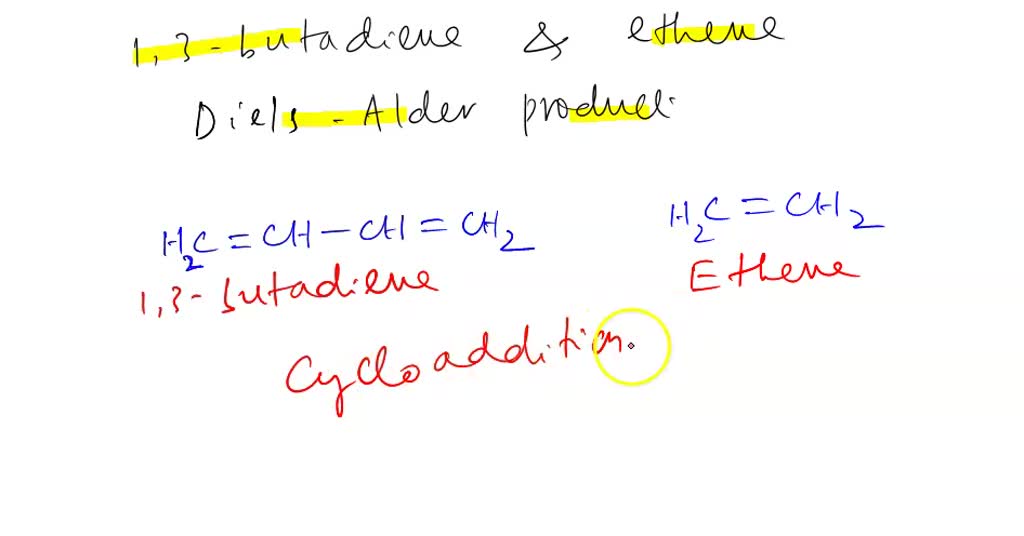 1,3-butadiene & ethene
Diels-Alder product
H₂C=CH-CH=CH₂ H₂C=CH₂
1,3-butadiene Ethene
Cycloaddition.